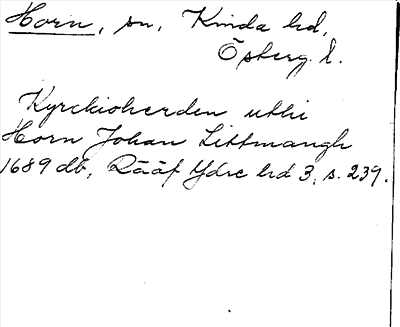 Horn, sn, Kinda hd,
Östberg. l.
Kyrckioherden uthi
Horn Johan Littmangh
1689 db, Rääf Ydre hd 3, s. 239.